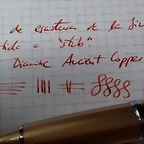 de escritura de la
a "stub".
Diamine Ancient Copper